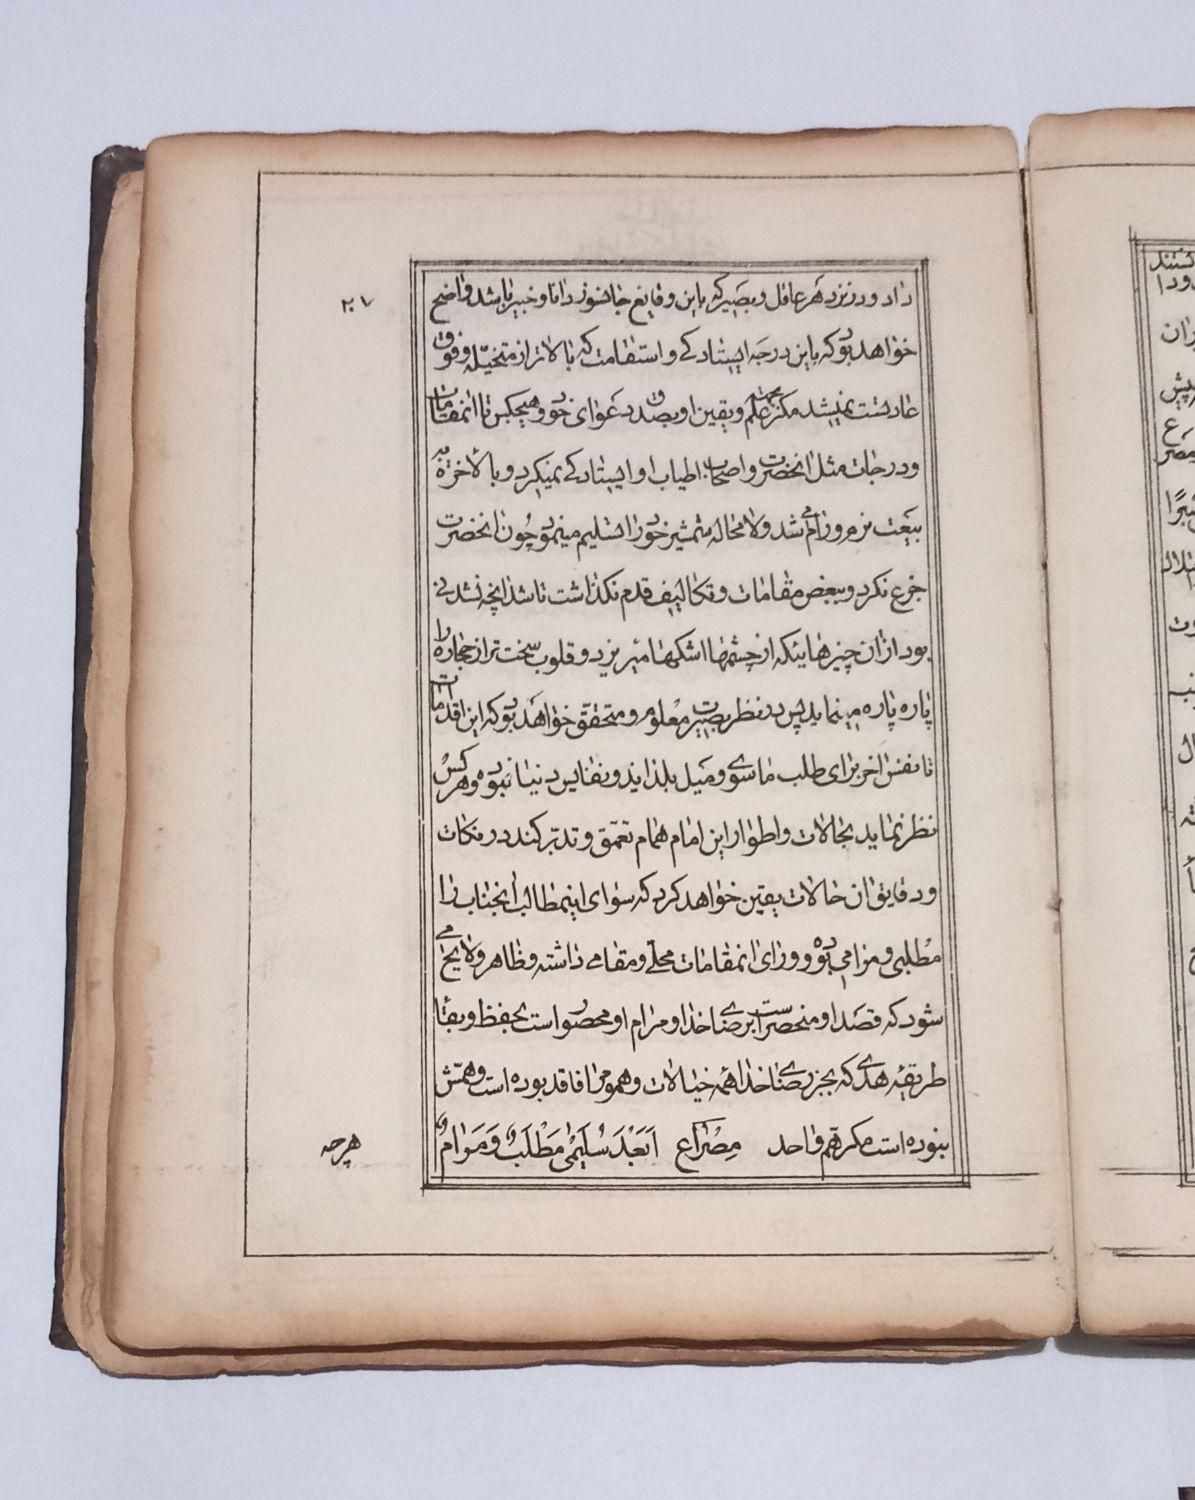 ۲۰۷
داد و در نزد هر عاقل و بصیر که باین وقایع جانسوز دانا و خبیر باشد واضح
خواهد بود که باین درجه ایستادکی و استقامت که بالاتر از متخیّله و فوق
عادتست نمیشد مکر بجهت علم و یقین او بصدق دعوای خود و هیچکس تا انمقامات
و درجات مثل انحضرت و اصحاب اطیاب او ایستادکی نمیکرد و بالاخره
بیعت نرم و رام می شد و لا محاله شمشیر خود را تسلیم مینمود چون انحضرت
جزع نکرد و ببعض مقامات و تکالیف قدم نکذاشت تا شد انچه نشدنی
بود از ان چیزهائیکه از چشمها اشکها میریزد و قلوب سخت تر از حجاره را
پاره پاره مینماید پس در نظر بصیرت معلوم و متحقق خواهد بود که این اقدامات
تا نفس اخر برای طلب ماسوی و میل بلذاید و نفایس دنیا نبوده و هر کس
نظر نماید بحالات و اطوار این امام همام تعمق و تدبر کند در نکات
و دقایق ان حالات یقین خواهد کرد که سوای اینمطالب انجناب را
مطلبی و مرامی بوده و ورای انمقامات محلی و مقامی داشته و ظاهر و لایح می
شود که قصد او منحصر است برضای خدا و مرام او محصور است بحفظ و بقاء
طریقه هدی که بجز رضای خدا همه خیالات و هموم را فاقد بوده است و همّش
نبوده است مکر همّ واحد مِصْراع اَبَعْدَ سُلَیْمٰی مَطْلَبٌ وَ مَرَامٌ
هرچه